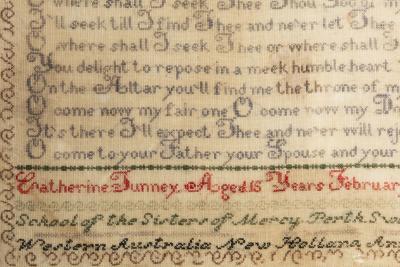 where shall I seek Thee Thou
I'll seek till I find Thee and ne'er let Thee
where shall I seek Thee or where shall I
You delight to repose in a meek humble heart
On the Altar you'll find me the throne of my
O come now my fair one O come now my
It's there I'll expect Thee and ne'er will rej
O come to your Father your Spouse and your
Catherine Tunney. Aged 15 Years Februar
School of the Sisters of Mercy. Perth. Swa
Western Australia New Holland. Ann